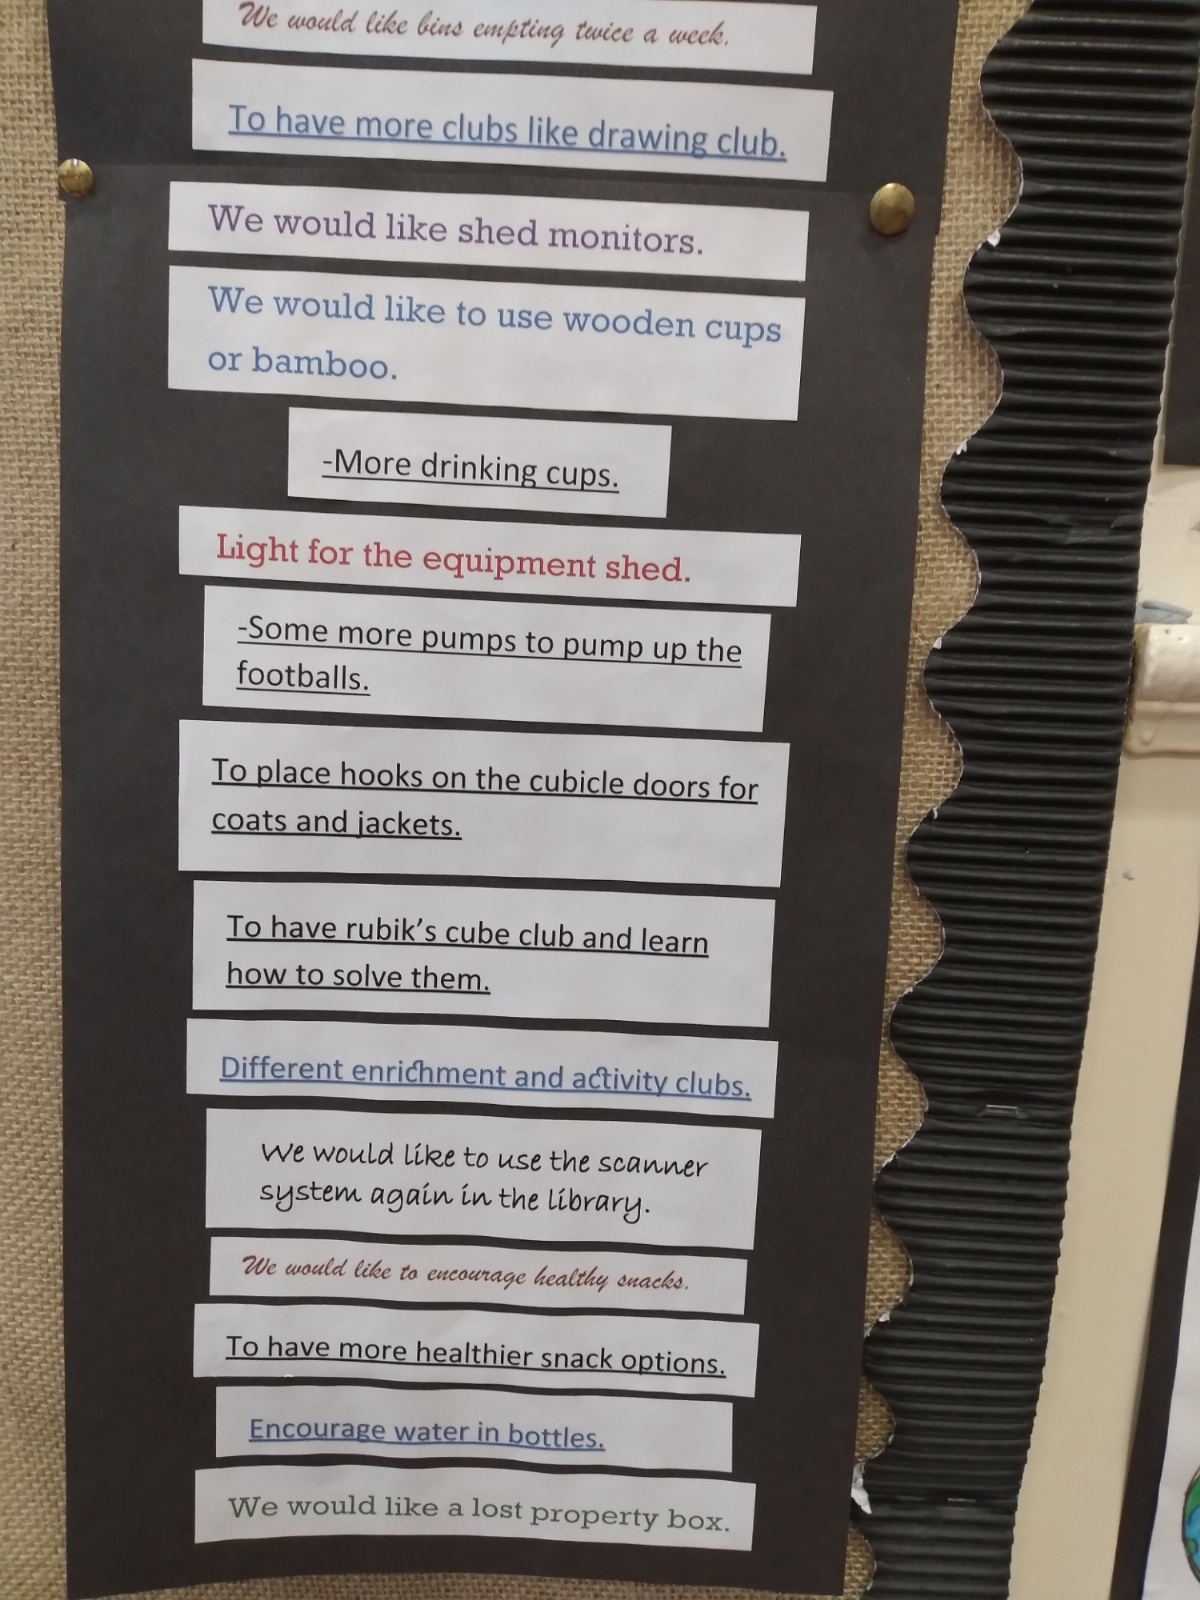 We would like bins empting twice a week.
To have more clubs like drawing club.
We would like shed monitors.
We would like to use wooden cups
or bamboo.
-More drinking cups.
Light for the equipment shed.
-Some more pumps to pump up the
footballs.
To place hooks on the cubicle doors for
coats and jackets.
To have rubik's cube club and learn
how to solve them.
Different enrichment and activity clubs.
We would like to use the scanner
system again in the library.
We would like to encourage healthy snacks.
To have more healthier snack options.
Encourage water in bottles.
We would like a lost property box.